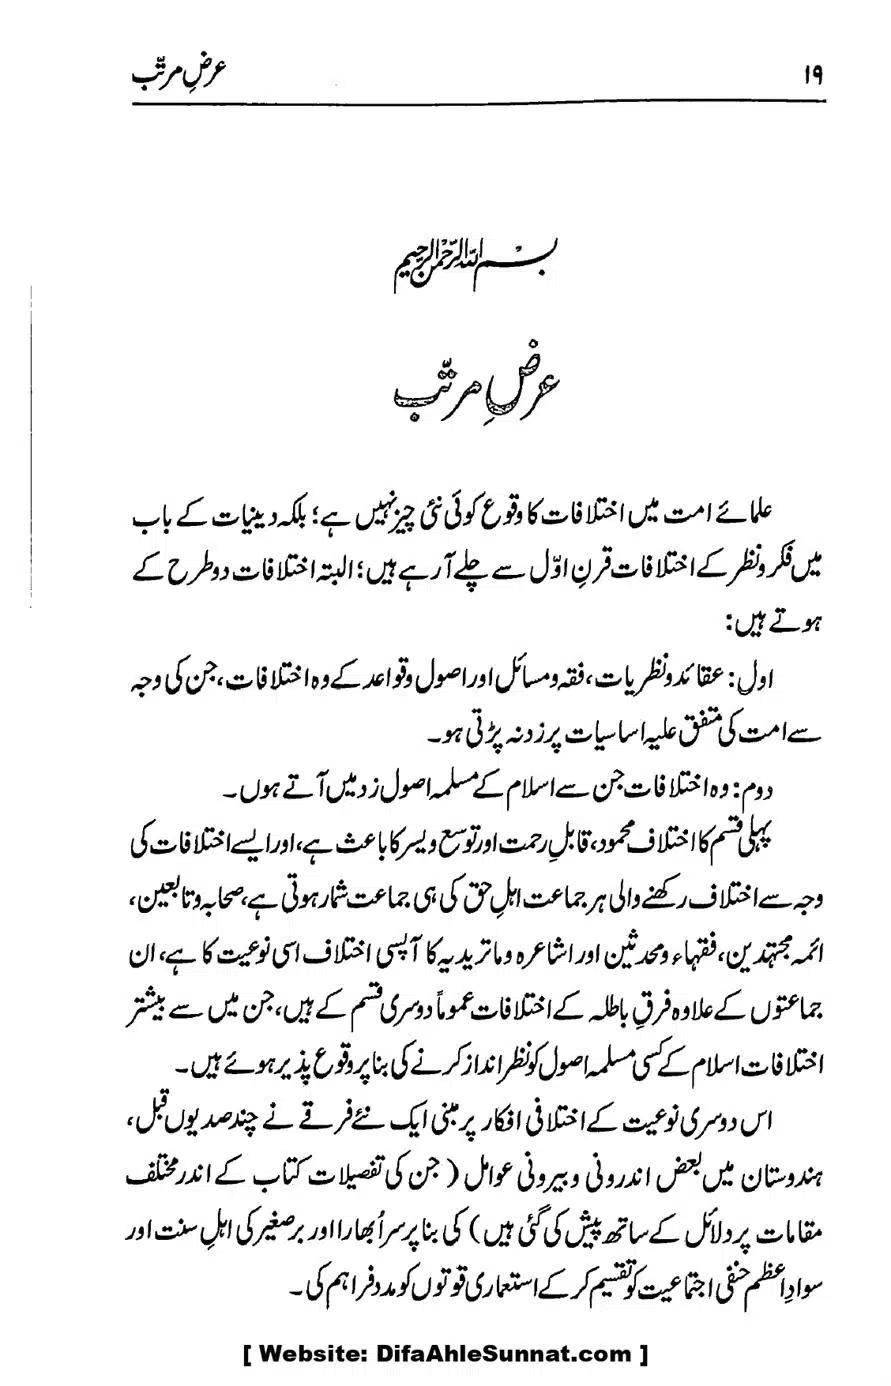 ۱۹ عرضِ مرتّب
بسم اللہ الرّحمٰن الرّحیم
عرضِ مرتّب
علمائے امت میں اختلافات کا وقوع کوئی نئی چیز نہیں ہے؛ بلکہ دینیات کے باب
میں فکر و نظر کے اختلافات قرنِ اوّل سے چلے آ رہے ہیں؛ البتہ اختلافات دو طرح کے
ہوتے ہیں:
اول: عقائد و نظریات، فقہ و مسائل اور اصول و قواعد کے وہ اختلافات، جن کی وجہ
سے امت کی متفق علیہ اساسیات پر زد نہ پڑتی ہو۔
دوم: وہ اختلافات جن سے اسلام کے مسلمہ اصول زد میں آتے ہوں۔
پہلی قسم کا اختلاف محمود، قابلِ رحمت اور توسع و یسر کا باعث ہے، اور ایسے اختلافات کی
وجہ سے اختلاف رکھنے والی ہر جماعت اہلِ حق کی ہی جماعت شمار ہوتی ہے، صحابہ و تابعین،
ائمہ مجتہدین، فقہاء و محدثین اور اشاعرہ و ماتریدیہ کا آپسی اختلاف اسی نوعیت کا ہے، ان
جماعتوں کے علاوہ فرقِ باطلہ کے اختلافات عموماً دوسری قسم کے ہیں، جن میں سے بیشتر
اختلافات اسلام کے کسی مسلمہ اصول کو نظر انداز کرنے کی بنا پر وقوع پذیر ہوئے ہیں۔
اس دوسری نوعیت کے اختلافی افکار پر مبنی ایک نئے فرقے نے چند صدیوں قبل،
ہندوستان میں بعض اندرونی و بیرونی عوامل (جن کی تفصیلات کتاب کے اندر مختلف
مقامات پر دلائل کے ساتھ پیش کی گئی ہیں) کی بنا پر سر اُبھارا اور برصغیر کی اہلِ سنت اور
سوادِ اعظم حنفی اجتماعیت کو تقسیم کر کے استعماری قوتوں کو مدد فراہم کی۔
[ Website: DifaAhleSunnat.com ]